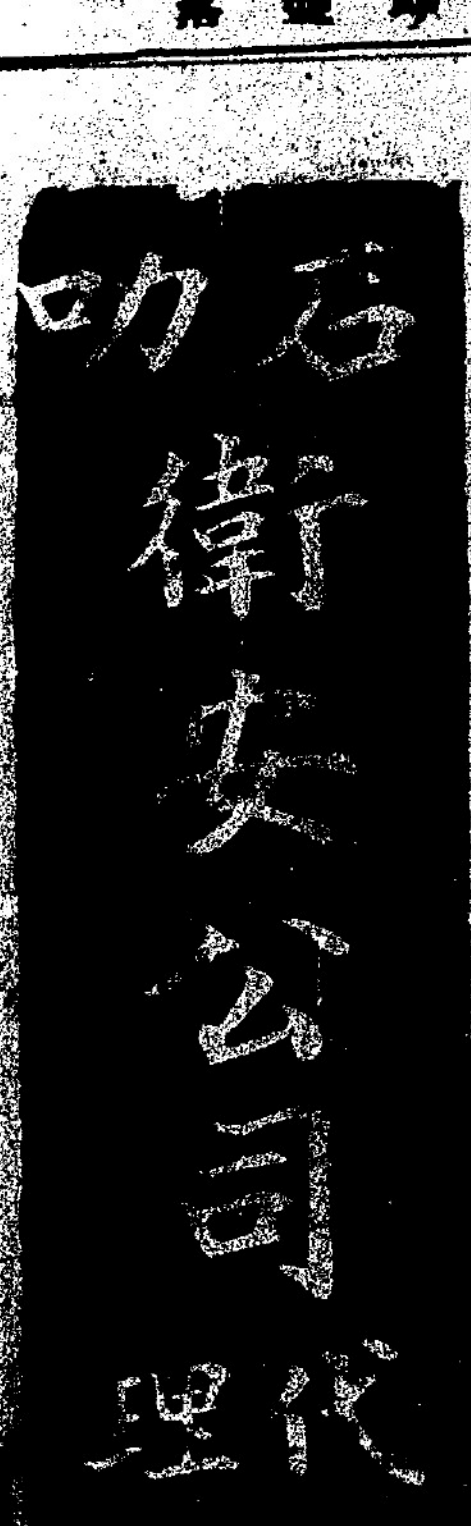 石叻
衛安公司
代理